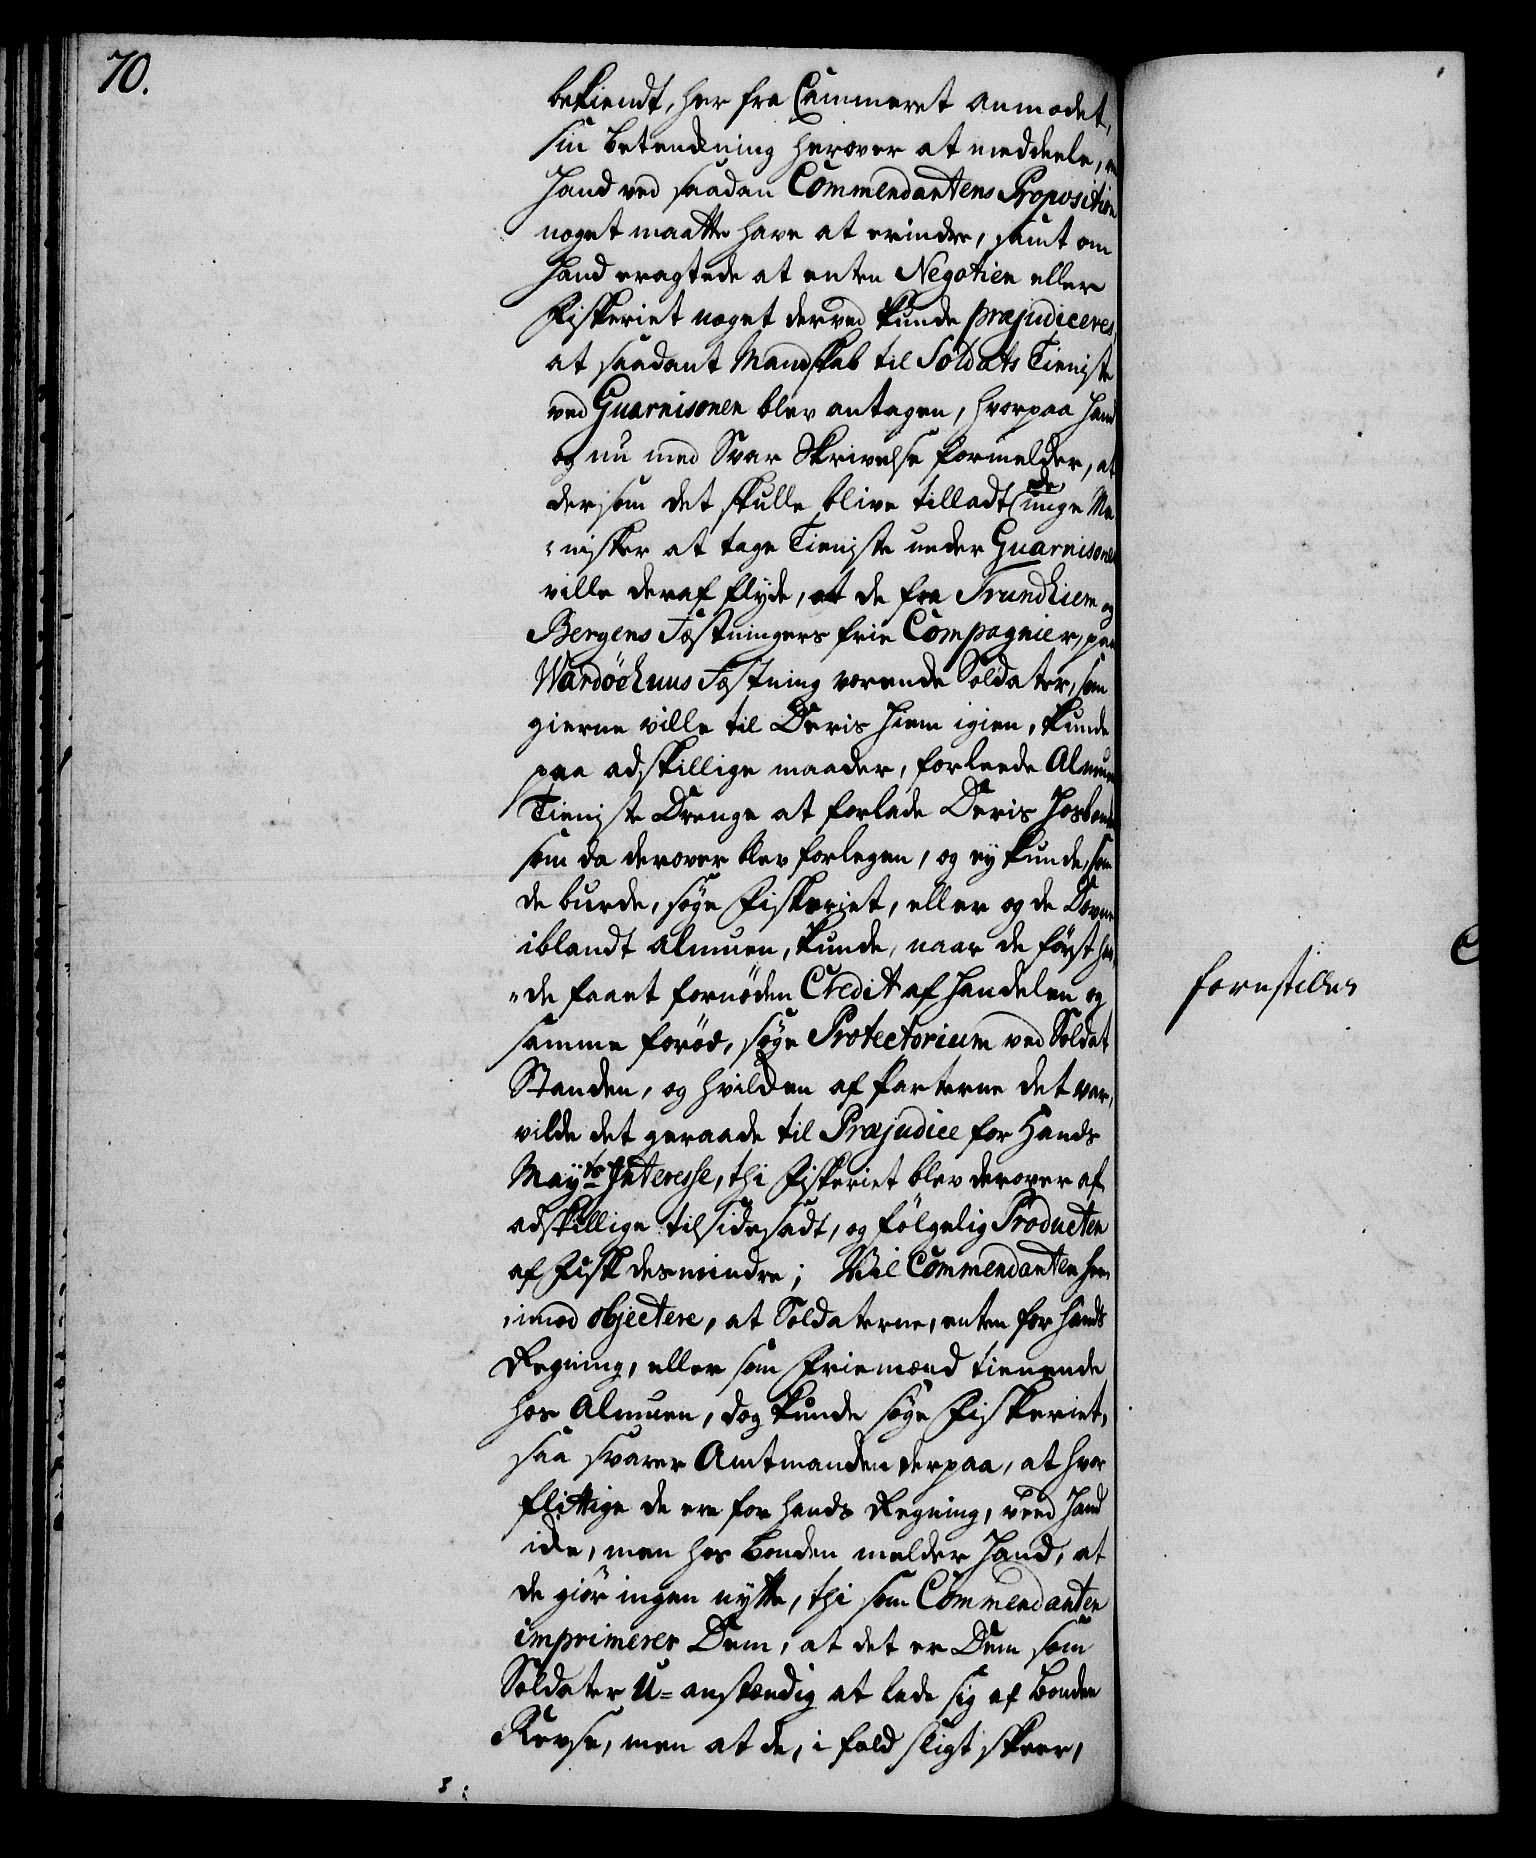 70.
bekiendt, her fra Cammeret anmodet,
sin betænkning herover at meddeele, om
Hand ved saadan Commendantens Proposition
noget maatte have at erindre, samt om
Hand eragtede at enten Negotien eller
Fiskeriet noget derved kunde præjudiceres,
at saadant Mandskab til Soldats Tieniste
ved Guarnisonen blev antagen, hvorpaa Hand
og nu med Svar Skrivelse formelder, at
dersom det skulle blive tilladt de unge Me
nisker at tage Tieniste under Guarnisonen
ville deraf flyde, at de fra Trundhiem og
Bergens Fæstningers frie Compagnier, paa
Wardöehuus Fæstning værende Soldater, som
gierne ville til Deris Hiem igien, kunde
paa adskillige maader, forleede Almuens
Tieniste Drenge at forlade Deris Hosbonde
som da derover blev forlegen, og ey kunde, som
de burde, søge Fiskeriet, eller og de Dovne
iblandt almuen, kunde, naar de først hav
de faaet fornöden Credit af Handelen og
samme forød, søge Protectorium ved Soldat
Standen, og hvilken af Parterne det var,
vilde det geraade til Præjudice for Hands
Mayts Interesse, thi Fiskeriet blev derover af
adskillige tilsidesadt, og fölgelig Producten
af Fisk desmindre; Vil Commendanten her
imod objectere, at Soldaterne, enten for hands
Regning, eller som Friemænd tienende
hos Almuen, dog kunde søge Fiskeriet,
saa svarer Amtmanden derpaa, at hvor
flittige de ere for hands Regning, veed Hand
icke, men hos bonden melder Hand, at
de giör ingen nytte, thi som Commendanten
imprimerer Dem, at det er Dem som
Soldater U-anstændig at lade sig af bonden
Revse, men at de, i fald sligt skeer,
forestilles